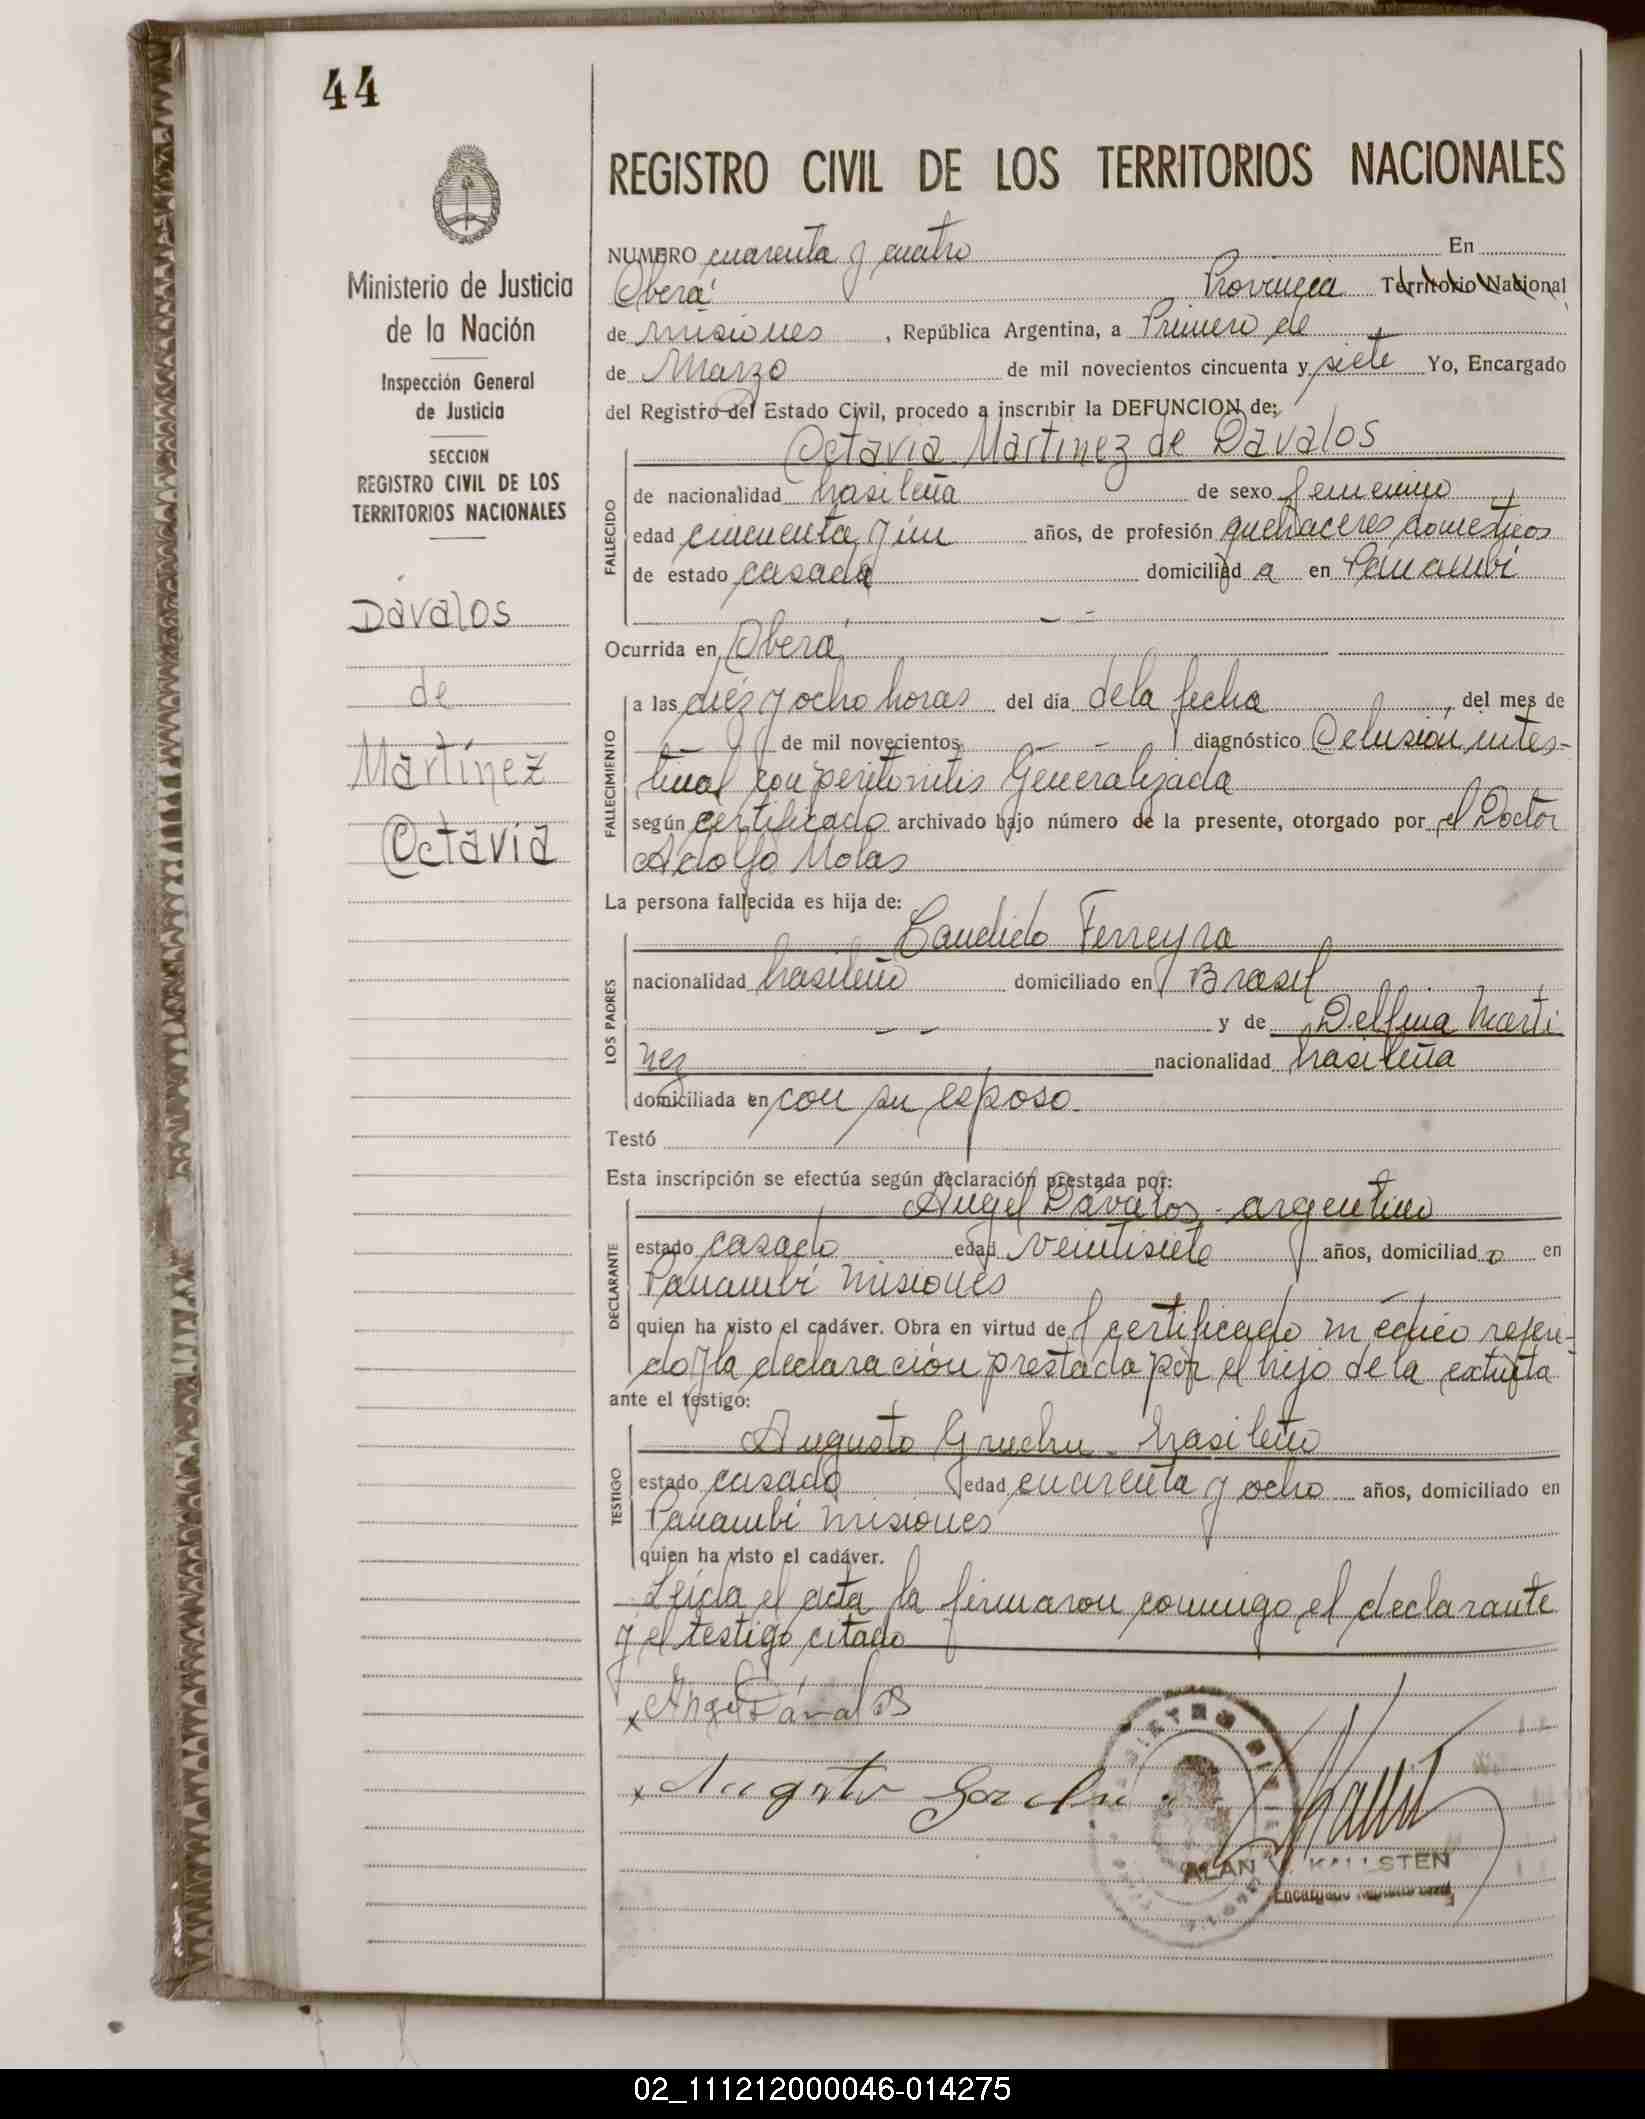 44
REGISTRO CIVIL DE LOS TERRITORIOS NACIONALES
Ministerio de Justicia
de la Nación
Inspección General
de Justicia
SECCION
REGISTRO CIVIL DE LOS
TERRITORIOS NACIONALES
Dávalos
de
Martínez
Octavia
NUMERO cuarenta y cuatro En
Oberá Provincia Territorio Nacional
de Misiones , República Argentina, a Primero de
de Marzo de mil novecientos cincuenta y siete Yo, Encargado
del Registro del Estado Civil, procedo a inscribir la DEFUNCION de:
Octavia Martinez de Dávalos
FALLECIDO
de nacionalidad brasileña de sexo femenino
edad cincuenta y un años, de profesión quehaceres domesticos
de estado casada domiciliad a en Panambí
Ocurrida en Oberá
FALLECIMIENTO
a las diéz y ocho horas del día de la fecha , del mes de
de mil novecientos - - diagnóstico Oclusión intes-
tinal con peritonitis Generalizada
según certificado archivado bajo número de la presente, otorgado por el Doctor
Adolfo Molas
La persona fallecida es hija de:
LOS PADRES
Candido Ferreyra
nacionalidad brasileño domiciliado en Brasil
- - y de Delfina Marti
nez nacionalidad brasileña
domiciliada en con su esposo.
Testó
Esta inscripción se efectúa según declaración prestada por:
DECLARANTE
Angel Dávalos - argentino
estado casado edad veintisiete años, domiciliad o en
Panambí Misiones
quien ha visto el cadáver. Obra en virtud del certificado médico referi-
do y la declaración prestada por el hijo de la extinta
ante el testigo:
TESTIGO
Augusto - brasileño
estado casado edad cuarenta y ocho años, domiciliado en
Panambí Misiones
quien ha visto el cadáver.
Leída el acta la firmaron conmigo el declarante
y el testigo citado
x Angel Dávalos
x Augusto
ALAN V. KALLSTEN
Encargado
02_111212000046-014275